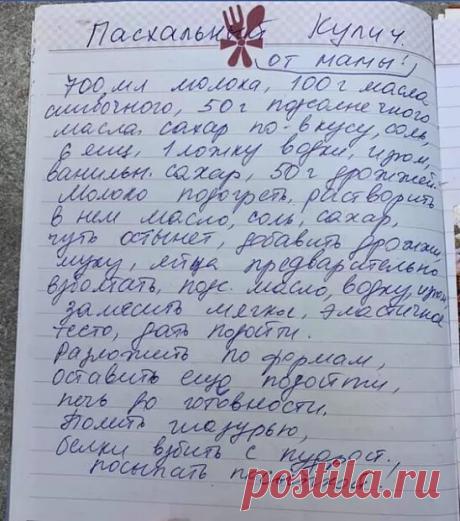 Пасхальный Кулич.
(от мамы!)
700 мл молока, 100 г масла
сливочного, 50 г подсолнечного
масла. сахар по-вкусу, соль,
6 яиц, 1 ложку водки, изюм,
ванильн. сахар, 50 г дрожжей.
Молоко подогреть, растворить
в нем масло, соль, сахар,
чуть остынет, добавить дрожжи,
муку, яйца предварительно
взболтать, подс. масло, водку, изюм
замесить мягкое, эластичное
тесто, дать подойти.
Разложить по формам,
оставить ещё подойти,
печь до готовности.
Полить глазурью,
белки взбить с пудрой.
посыпать
potokudach.ru